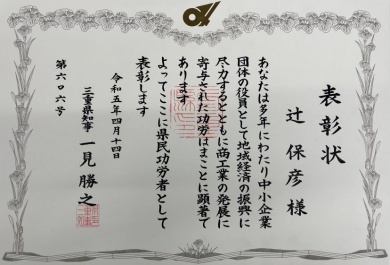 表彰状
辻保彦様
あなたは多年にわたり中小企業
団体の役員として地域経済の振興に
尽力するとともに商工業の発展に
寄与された功労はまことに顕著で
あります
よってここに県民功労者として
表彰します
令和五年四月十四日
三重県知事 一見勝之
第六〇六号